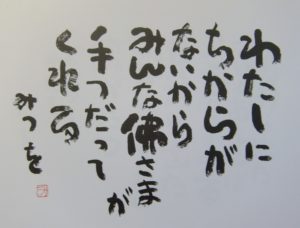 わたしに
ちからが
ないから
みんな佛さまが
手つだって
くれる
みつを